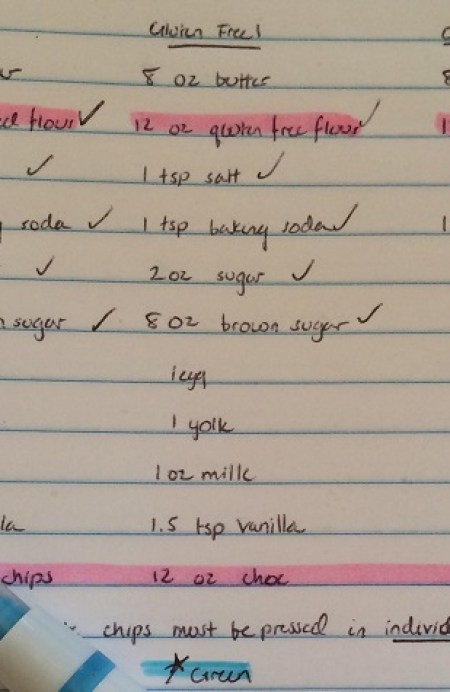 Gluten Free!
8 oz butter
flour ✓ 12 oz gluten free flour ✓
✓ 1 tsp salt ✓
soda ✓ 1 tsp baking soda ✓
✓ 2 oz sugar ✓
sugar ✓ 8 oz brown sugar ✓
1 egg
1 yolk
1 oz milk
1.5 tsp vanilla
chips 12 oz choc
chips must be pressed in individ
*Green